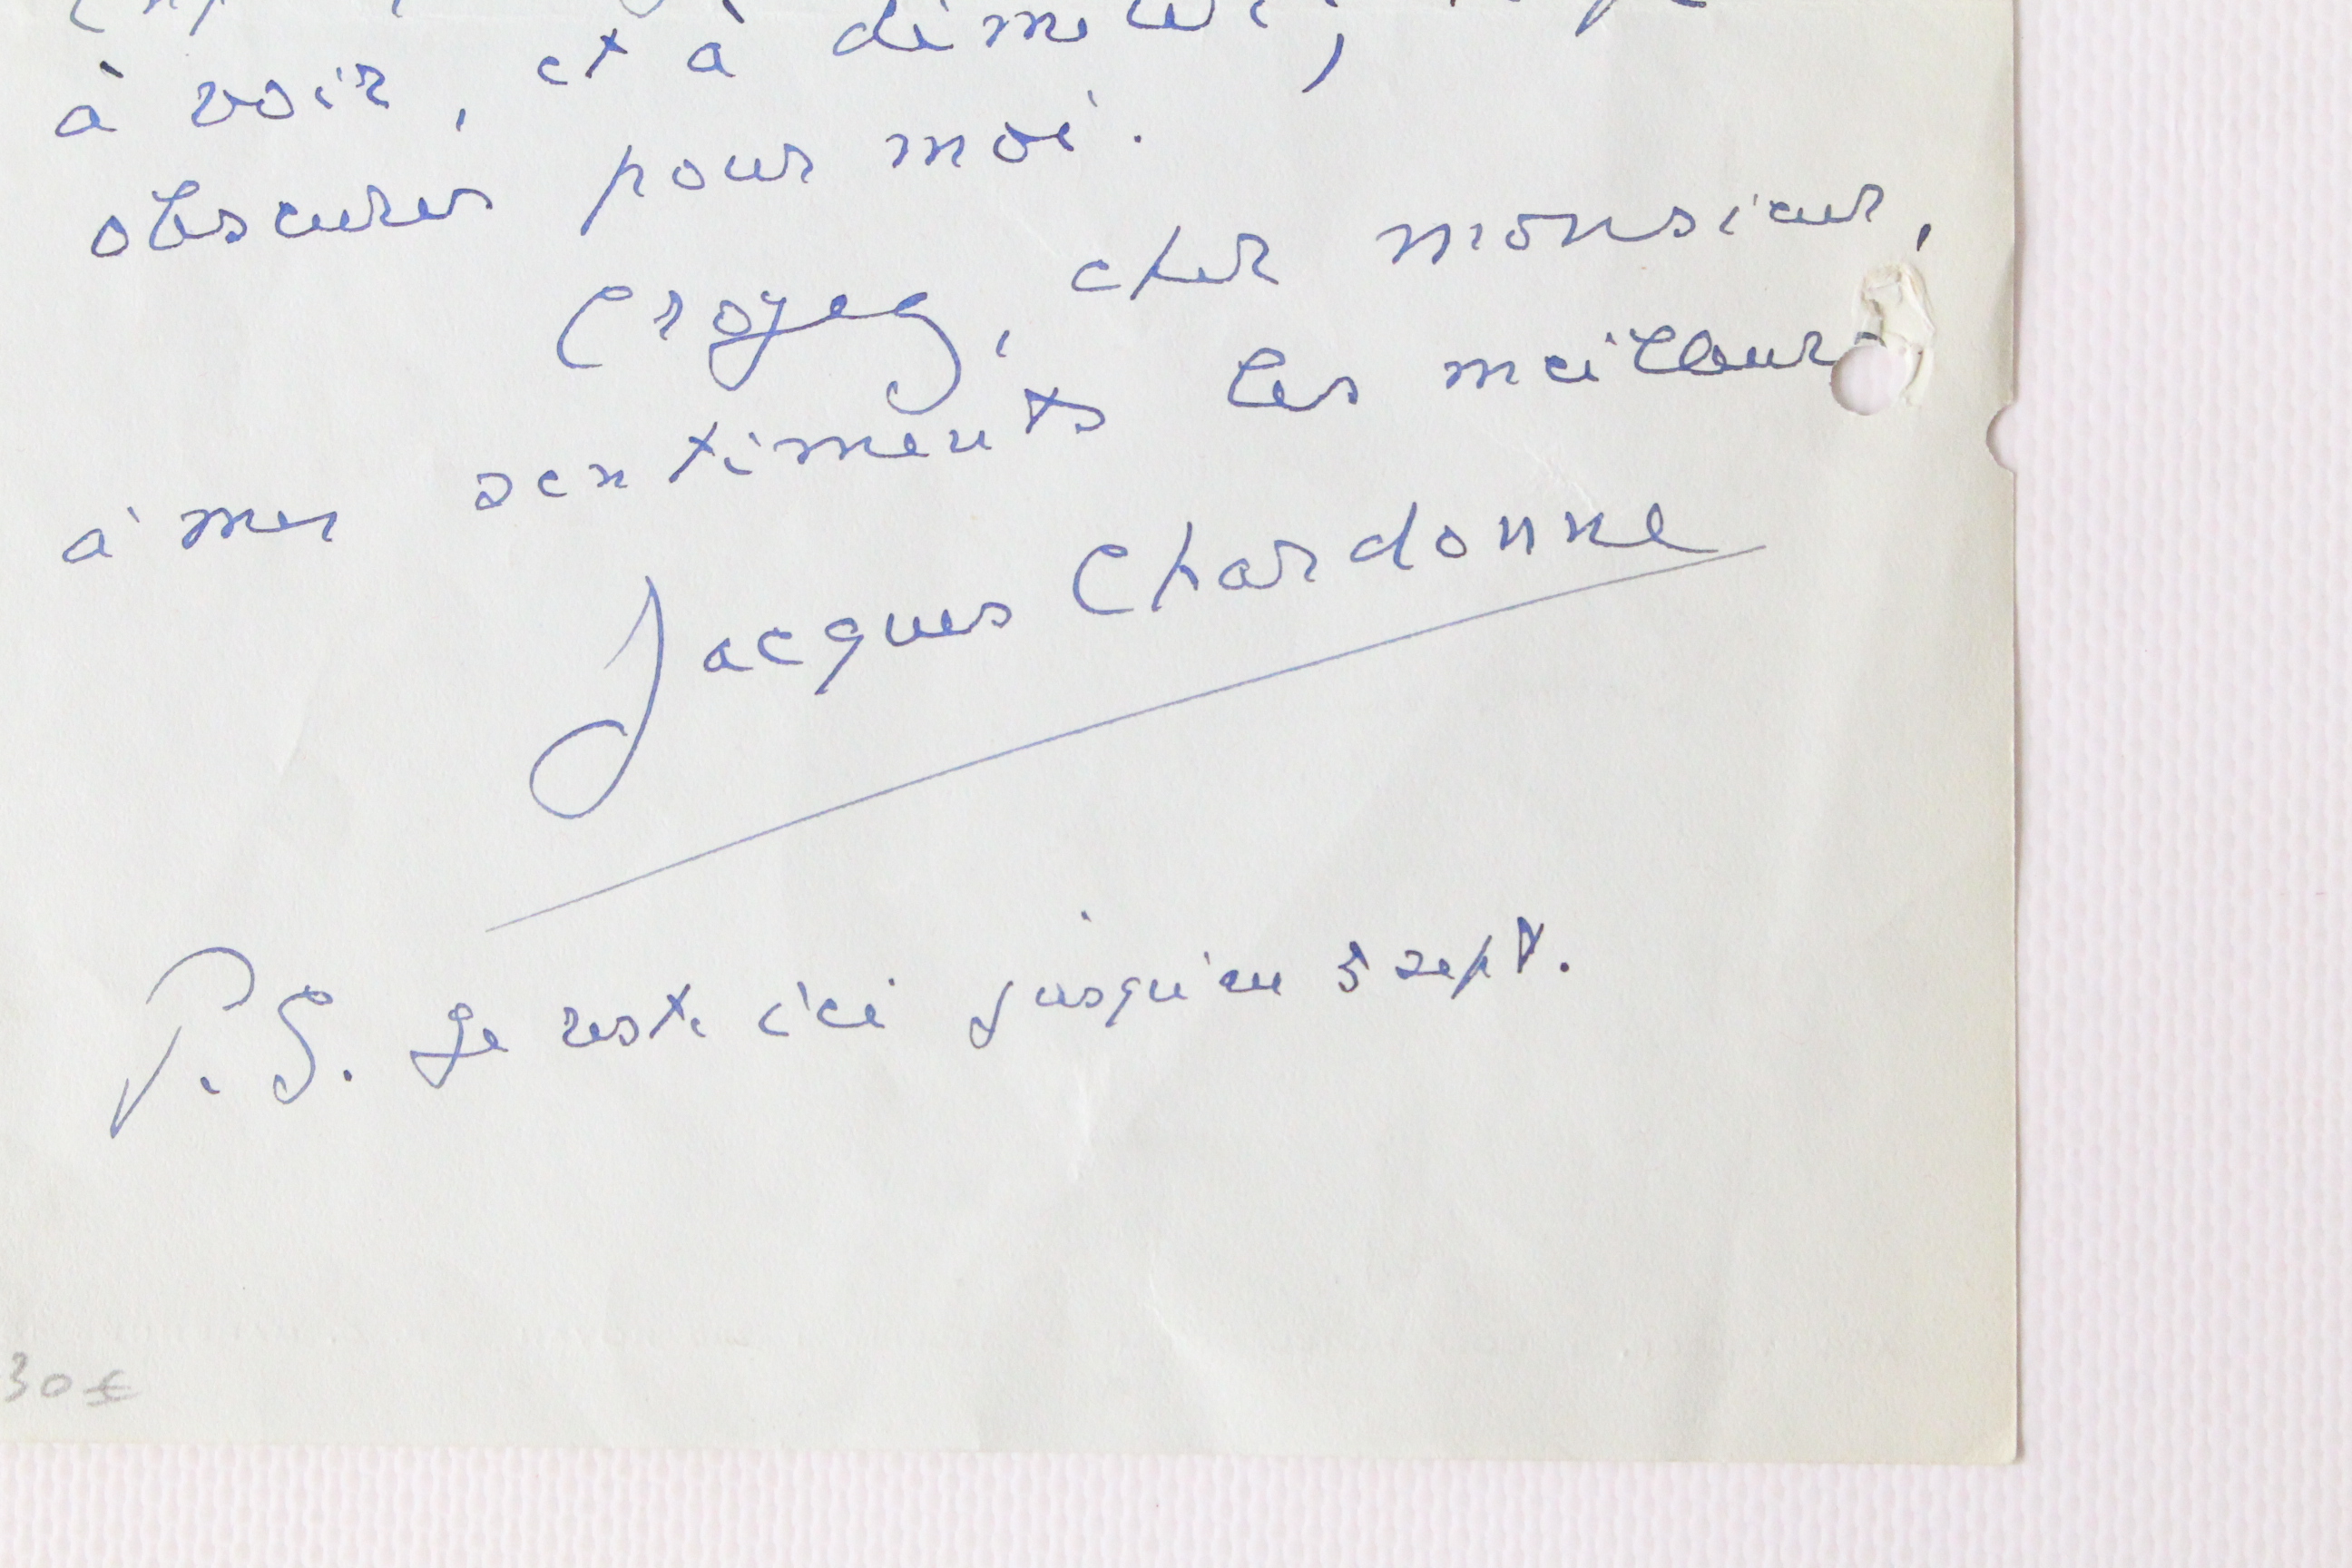 à voir, et à démêler,
obscures pour moi.
Croyez, cher monsieur,
à mes sentiments les meilleurs
Jacques Chardonne
P.S. Je reste ici jusqu'au 5 sept.
30 €